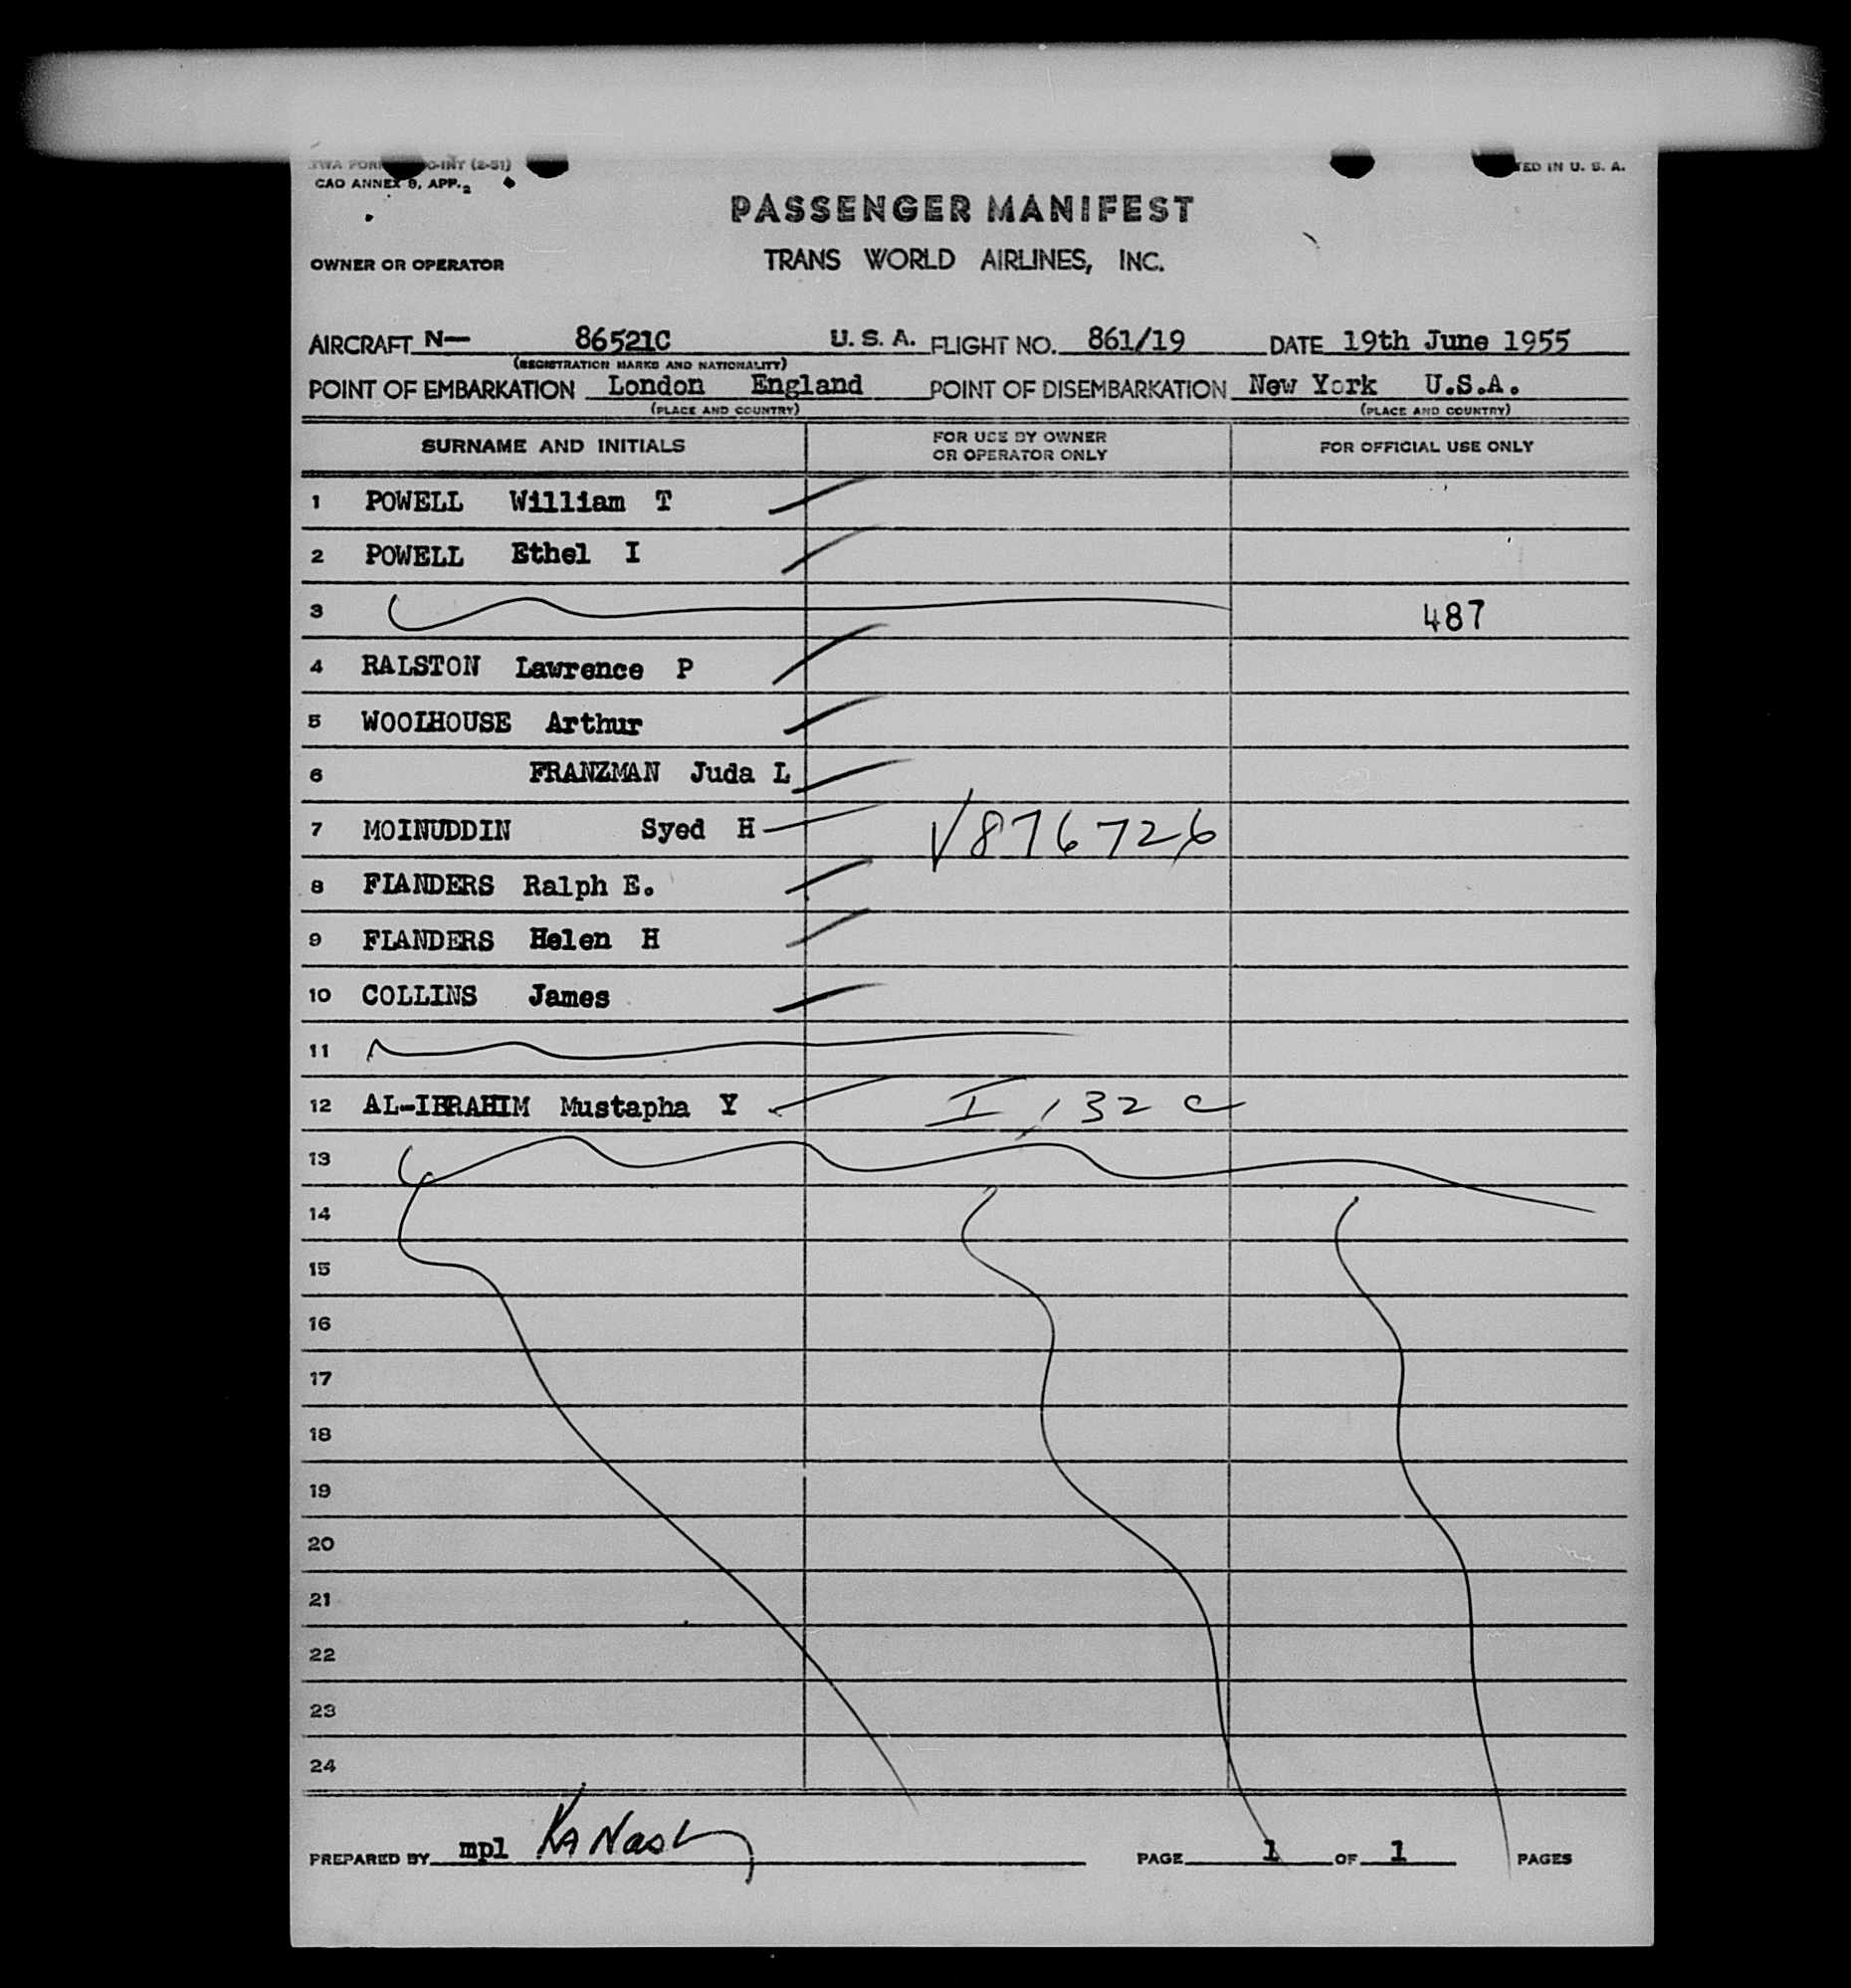 TWA FORM C-INT (2-51)
CAO ANNEX 9, APP. 2
TED IN U. S. A.
PASSENGER MANIFEST
OWNER OR OPERATOR TRANS WORLD AIRLINES, INC.
AIRCRAFT N— 86521C U. S. A. FLIGHT NO. 861/19 DATE 19th June 1955
(REGISTRATION MARKS AND NATIONALITY)
POINT OF EMBARKATION London England POINT OF DISEMBARKATION New York U.S.A.
(PLACE AND COUNTRY) (PLACE AND COUNTRY)
SURNAME AND INITIALS FOR USE BY OWNER OR OPERATOR ONLY FOR OFFICIAL USE ONLY
1 POWELL William T
2 POWELL Ethel I
3 487
4 RALSTON Lawrence P
5 WOOLHOUSE Arthur
6 FRANZMAN Juda L
7 MOINUDDIN Syed H V876726
8 FLANDERS Ralph E.
9 FLANDERS Helen H
10 COLLINS James
11
12 AL-IBRAHIM Mustapha Y I, 32 c
13
14
15
16
17
18
19
20
21
22
23
24
PREPARED BY mpl KA Nash PAGE 1 OF 1 PAGES